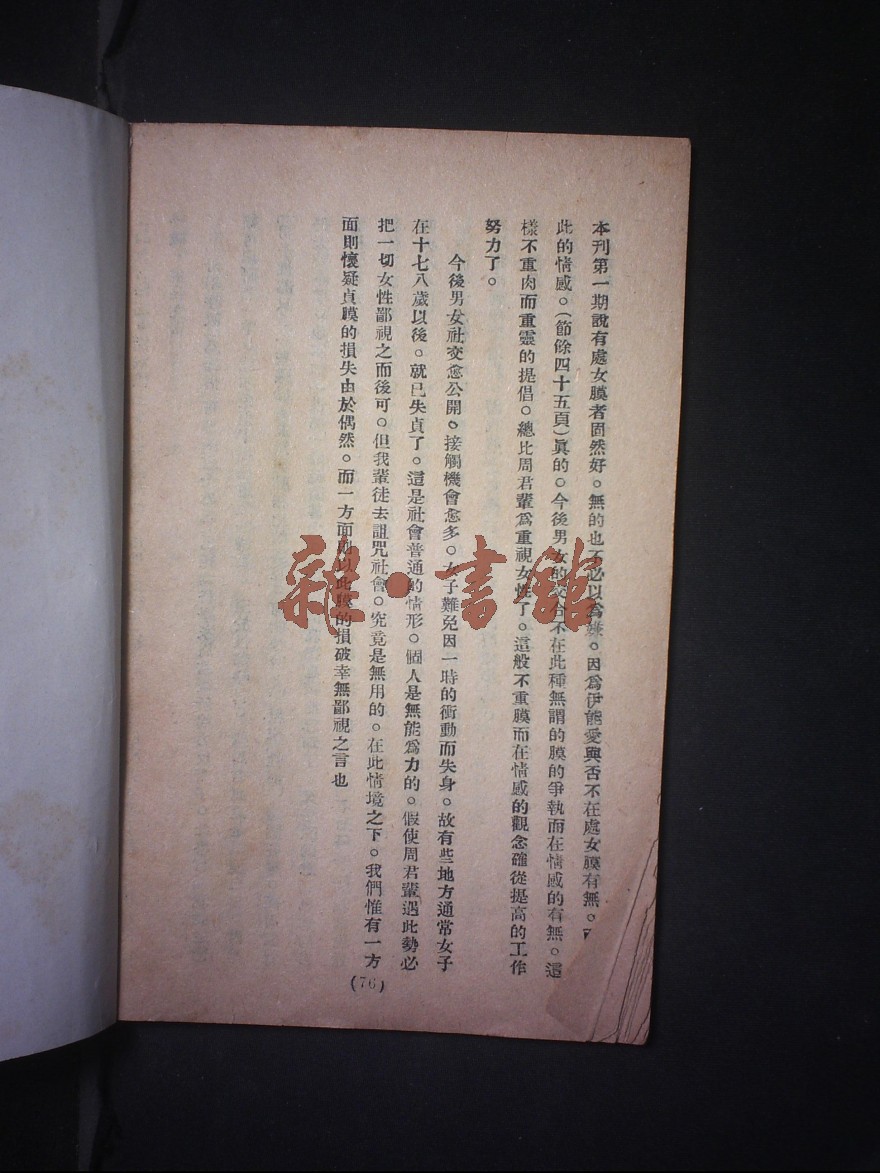 本刊第一期說有處女膜者固然好。無的也不必以爲嫌。因爲伊能愛與否不在處女膜有無。
此的情感。(節餘四十五頁)眞的。今後男女的交合不在此種無謂的膜的爭執而在情感的有無。這
樣不重肉而重靈的提倡。總比周君輩爲重視女性了。這般不重膜而在情感的觀念確從提高的工作
努力了。
今後男女社交愈公開。接觸機會愈多。女子難免因一時的衝動而失身。故有些地方通常女子
在十七八歲以後。就已失貞了。這是社會普通的情形。個人是無能爲力的。假使周君輩遇此勢必
把一切女性鄙視之而後可。但我輩徒去詛咒社會。究竟是無用的。在此情境之下。我們惟有一方
面則懷疑貞膜的損失由於偶然。而一方面則以此膜的損破幸無鄙視之言也
(76)
雜·書館